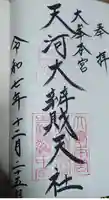 奉拝
大峯本宮
天河大辨財天社
令和七年十二月二十五日